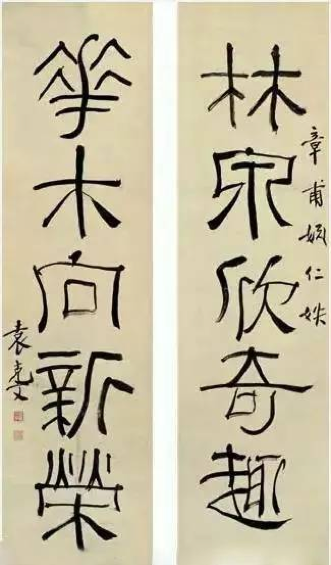 林泉欣奇趣
章甫仁
華木向新榮
袁克文